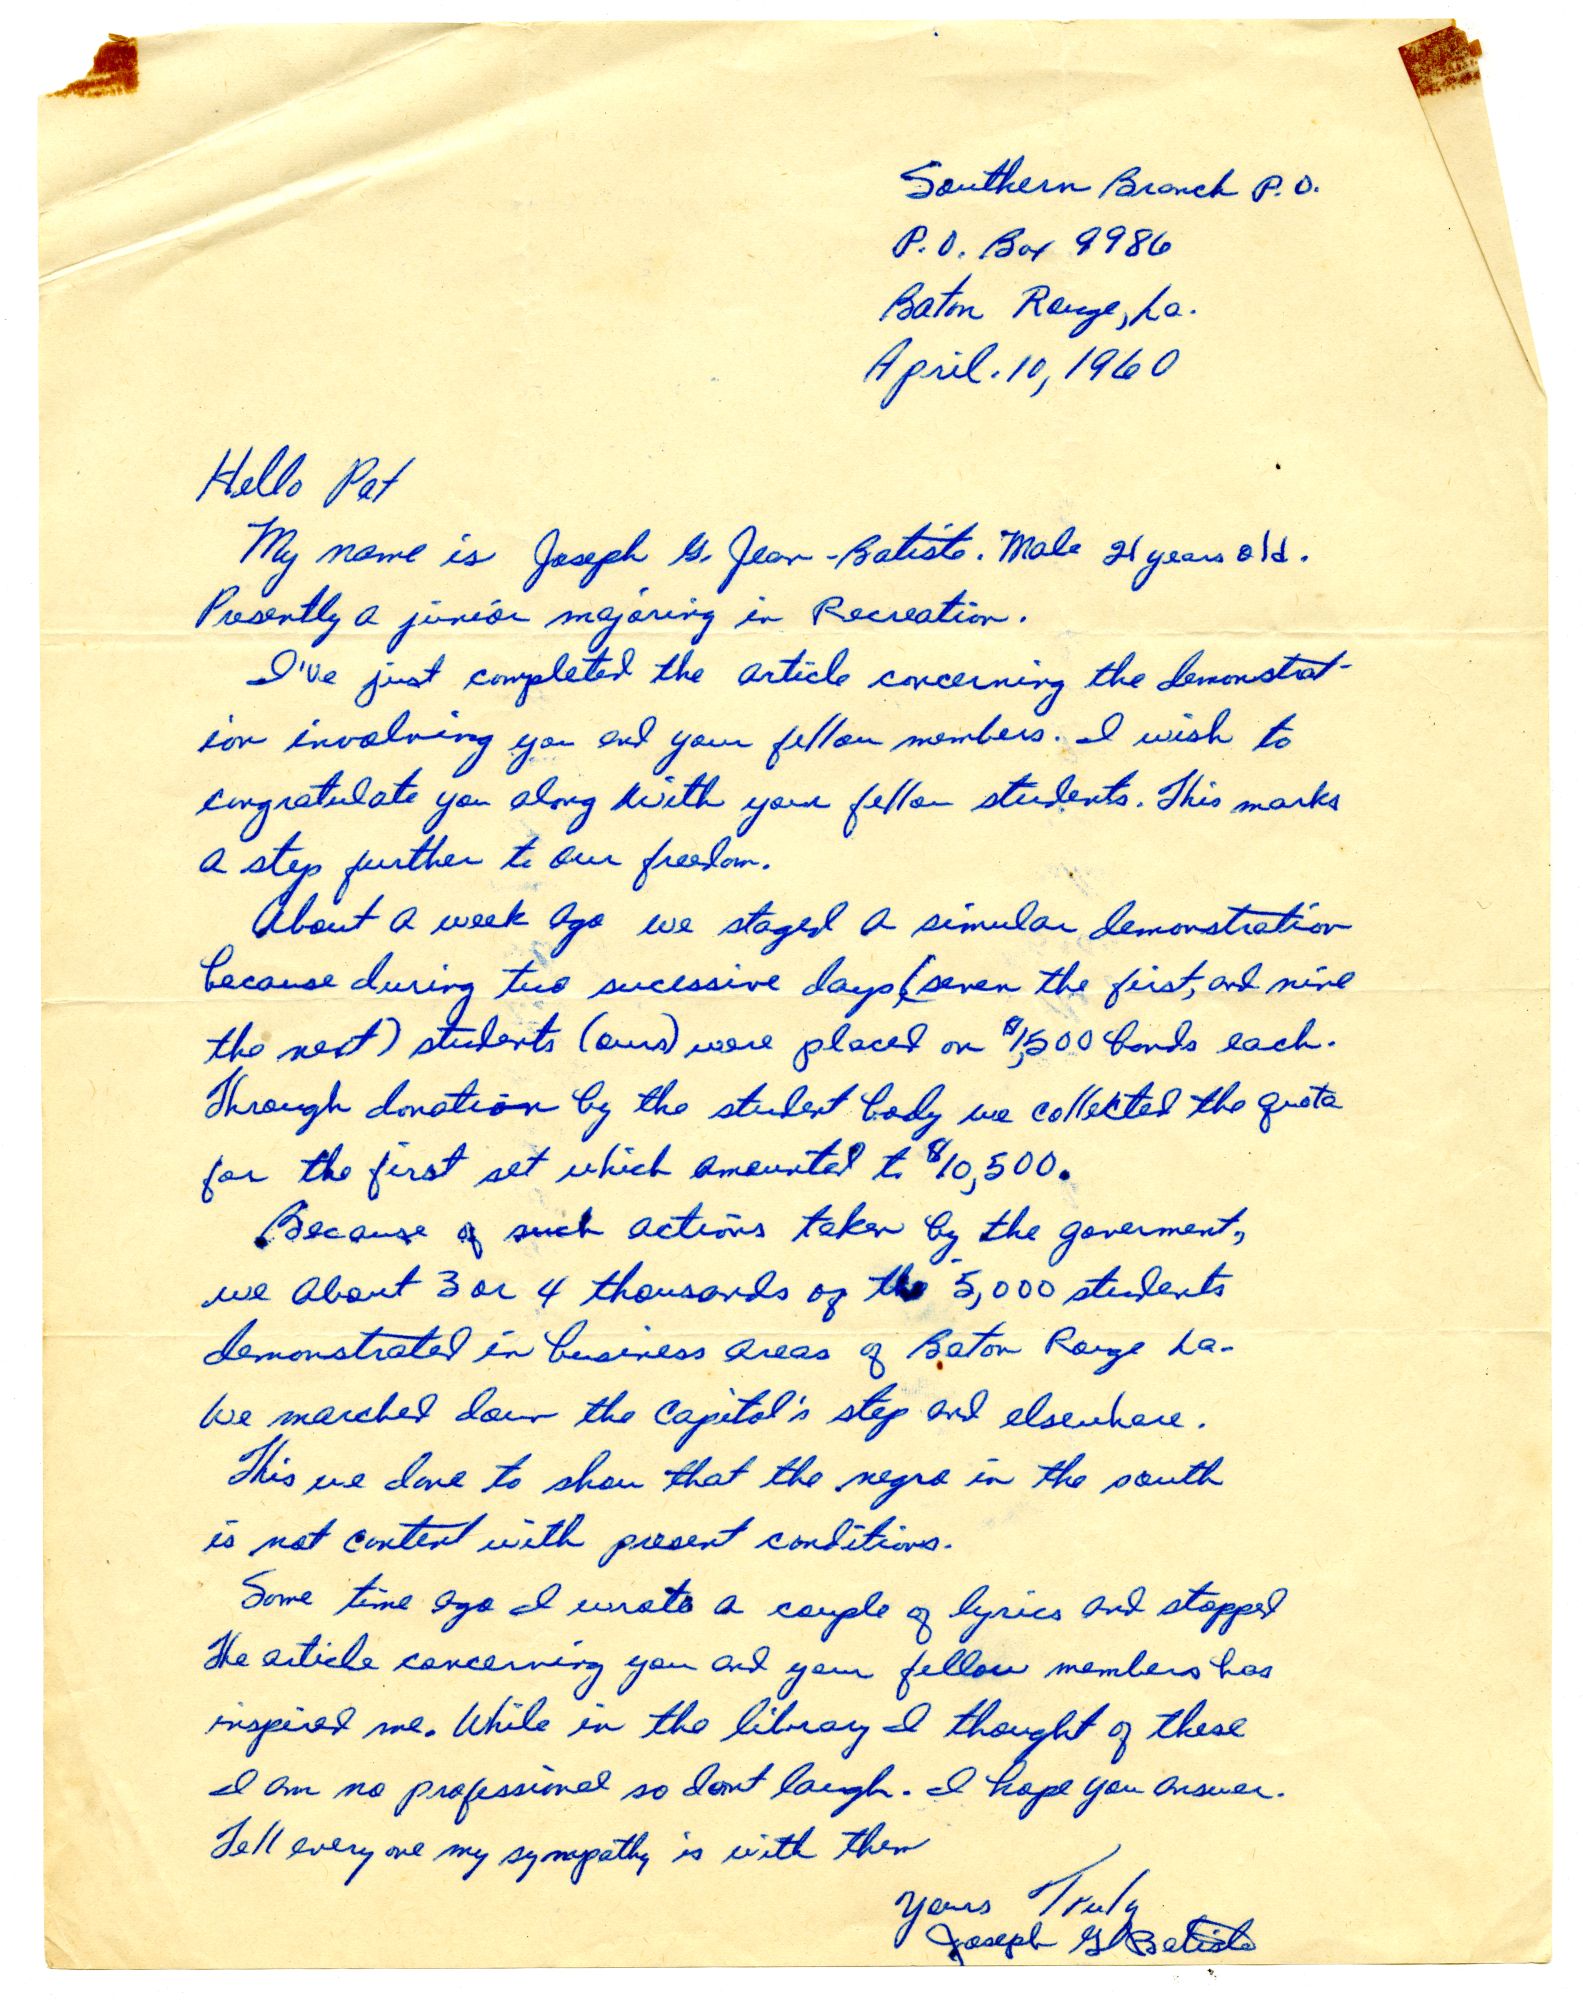 Southern Branch P.O.
P.O. Box 9986
Baton Rouge, La.
April. 10, 1960
Hello Pat
My name is Joseph G. Jean-Batiste. Male 21 years old.
Presently a junior majoring in Recreation.
I've just completed the article concerning the demonstrat-
ion involving you and your fellow members. I wish to
congratulate you along with your fellow students. This marks
a step further to our freedom.
About a week ago we staged a simular demonstration
because during two sucessive days (seven the first, and nine
the next) students (ours) were placed on $1,500 bonds each.
Through donation by the student body we collected the quota
for the first set which amounted to $10,500.
Because of such actions taken by the goverment,
we about 3 or 4 thousands of the 5,000 students
demonstrated in business areas of Baton Rouge La.
We marched down the Capitol's step and elsewhere.
This we done to show that the negro in the south
is not content with present conditions.
Some time ago I wrote a couple of lyrics and stopped
The article concerning you and your fellow members has
inspired me. While in the library I thought of these
I am no professional so dont laugh. I hope you answer.
Tell every one my sympathy is with them
Yours Truly
Joseph G Batiste